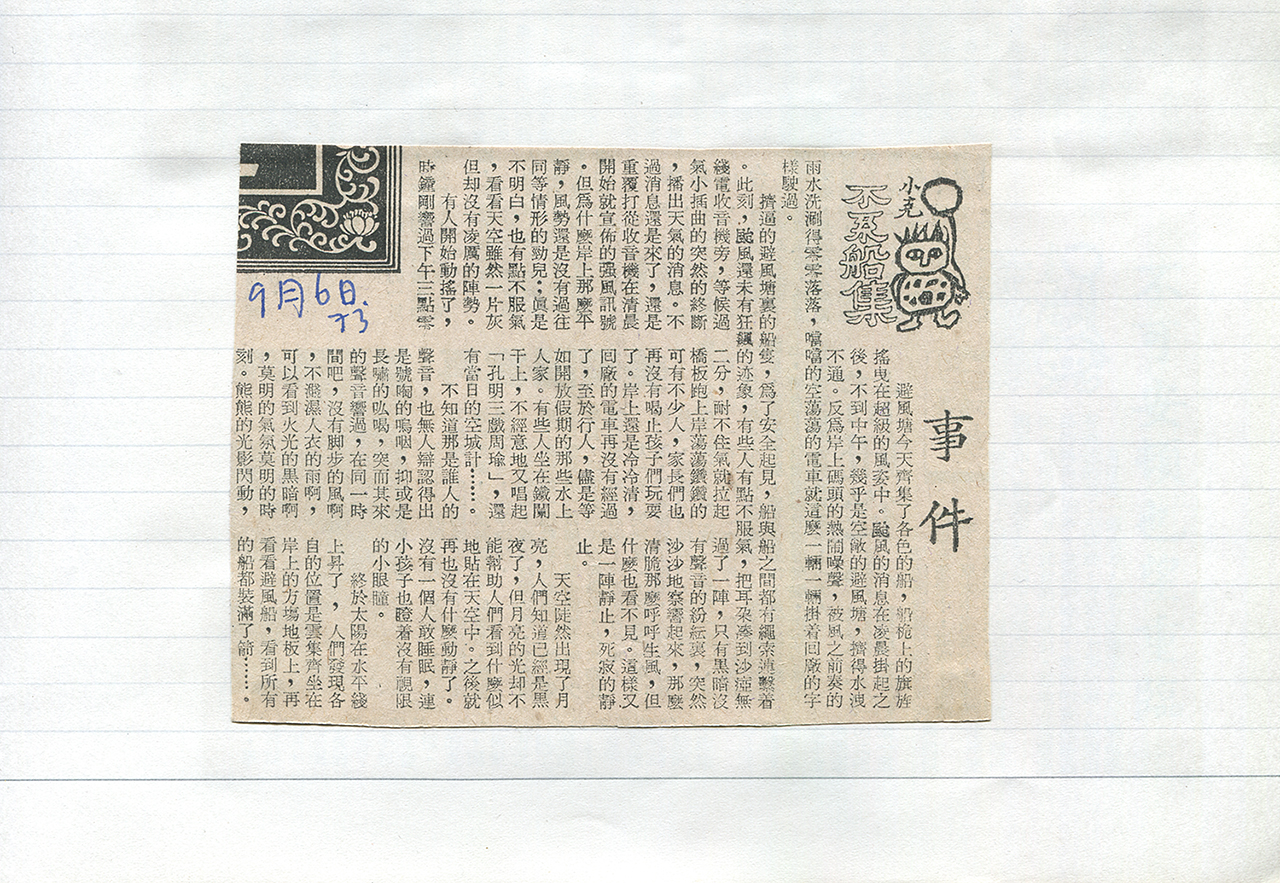 小克
不系船集
事件
避風塘今天齊集了各色的船，船桅上的旗旌
搖曳在超級的風姿中。颱風的消息在凌晨掛起之
後，不到中午，幾乎是空敞的避風塘，擠得水洩
不通。反爲岸上碼頭的熱鬧噪聲，被風之前奏的
雨水洗涮得零零落落，噹噹的空蕩蕩的電車就這麽一輛一輛掛着回廠的字
樣駛過。
擠逼的避風塘裏的船隻，爲了安全起見，船與船之間都有繩索連繫着
。此刻，颱風還未有狂飆的迹象，有些人有點不服氣，把耳朶湊到沙啞無
綫電收音機旁，等候過
氣小插曲的突然的終斷
，播出天氣的消息。不
過消息還是來了，還是
重覆打從收音機在清晨
開始就宣佈的强風訊號
。但爲什麽岸上那麽平
靜，風勢還是沒有過往
同等情形的勁兒；眞是
不明白，也有點不服氣
，看看天空雖然一片灰
但却沒有凌厲的陣勢。
有人開始動搖了，
時鐘剛響過下午三點零
二分，耐不住氣就拉起
橋板跑上岸蕩蕩鑽鑽的
可有不少人，家長們也
再沒有喝止孩子們玩耍
了。岸上還是冷冷清，
回廠的電車再沒有經過
了，至於行人，儘是等
如開放假期的那些水上
人家。有些人坐在鐵闌
干上，不經意地又唱起
「孔明三戲周瑜」，還
有當日的空城計……。
不知道那是誰人的
聲音，也無人辯認得出
是號啕的嗚咽，抑或是
長嘯的吆喝，突而其來
的聲音響過，在同一時
間吧，沒有脚步的風啊
，不濺濕人衣的雨啊，
可以看到火光的黑暗啊
，莫明的氣氛莫明的時
刻。熊熊的光影閃動，
過了一陣，只有黑暗沒
有聲音的紛紜裏，突然
沙沙地察響起來，那麽
清脆那麽呼呼生風，但
什麽也看不見。這樣又
是一陣靜止，死寂的靜
止。
天空陡然出現了月
亮，人們知道已經是黑
夜了，但月亮的光却不
能幫助人們看到什麽似
地貼在天空中。之後就
再也沒有什麽動靜了。
沒有一個人敢睡眠，連
小孩子也瞪着沒有視限
的小眼瞳。
終於太陽在水平綫
上昇了，人們發現各
自的位置是雲集齊坐在
岸上的方塲地板上，再
看看避風船，看到所有
的船都裝滿了箭……。
9月6日.
73